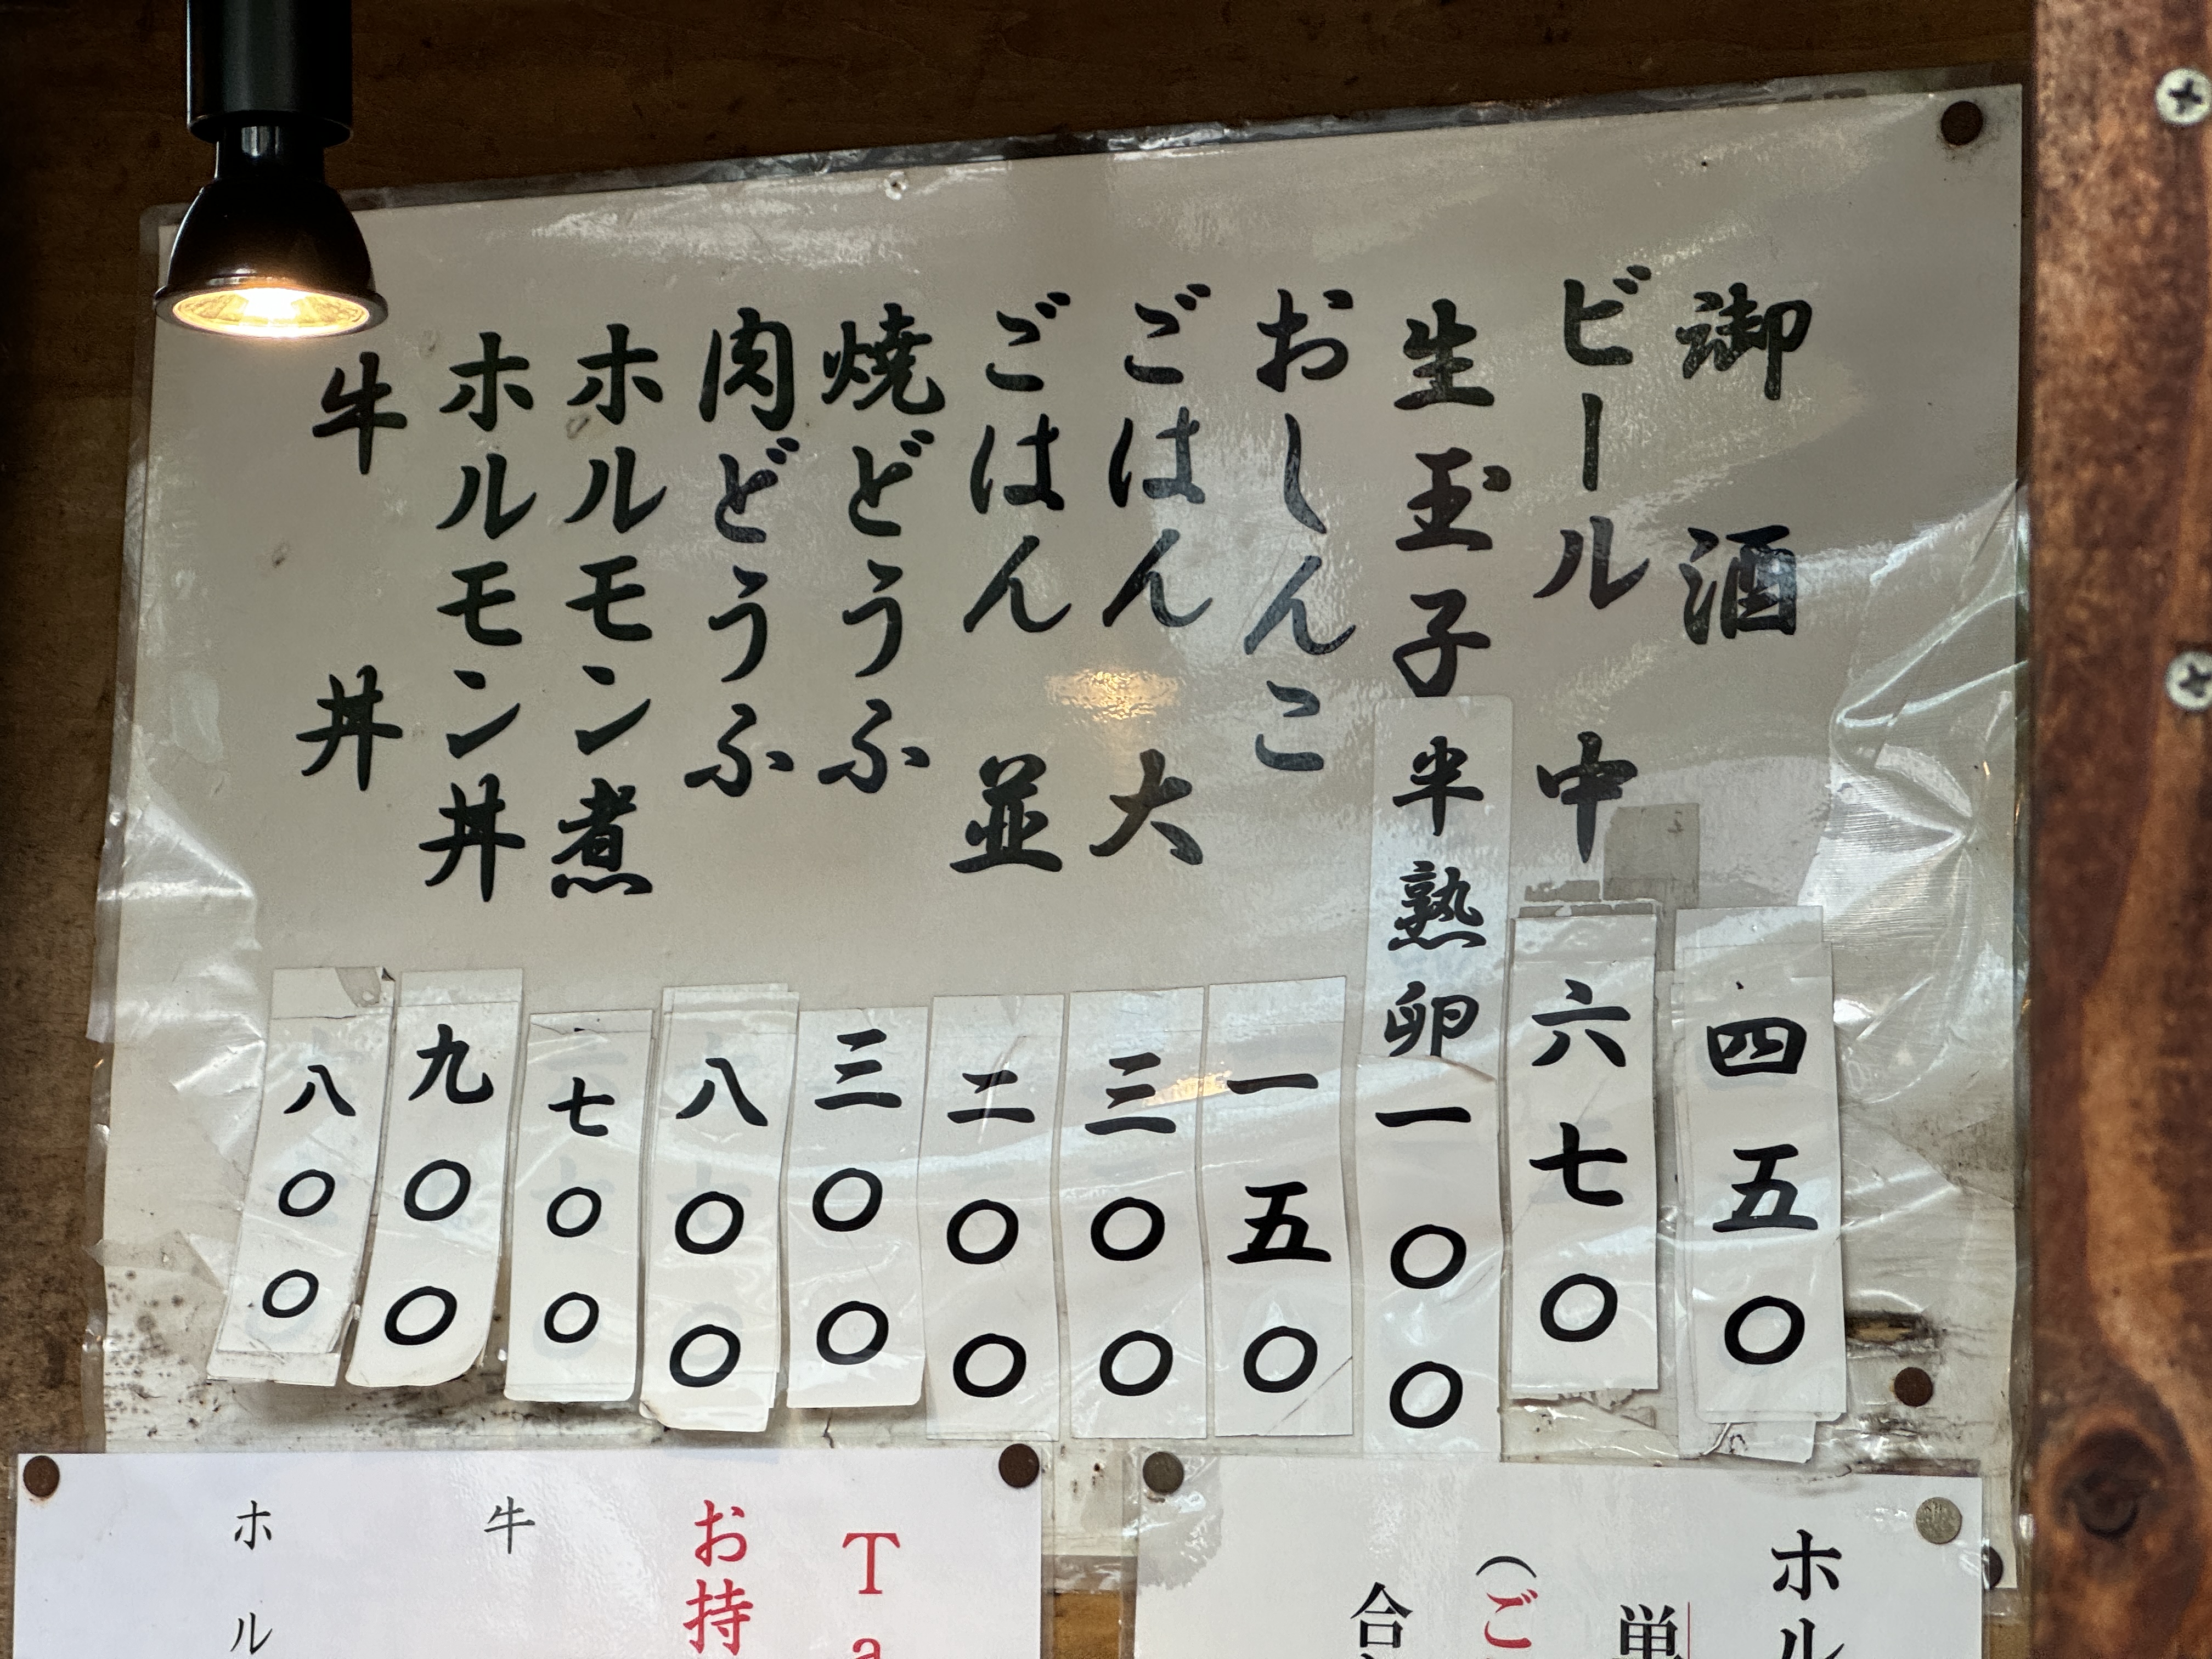 御酒 四五〇
ビール 中 六七〇
生玉子 半熟卵 一〇〇
おしんこ 一五〇
ごはん 大 三〇〇
ごはん 並 二〇〇
焼どうふ 三〇〇
肉どうふ 八〇〇
ホルモン煮 七〇〇
ホルモン丼 九〇〇
牛丼 八〇〇
ホル
単
(ご
合
Ta
お持
牛
ホル